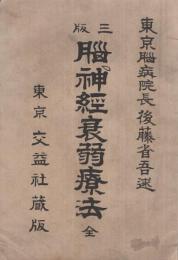 東京腦病院長後藤省吾述
三版
腦神經衰弱療法 全
東京 交益社藏版